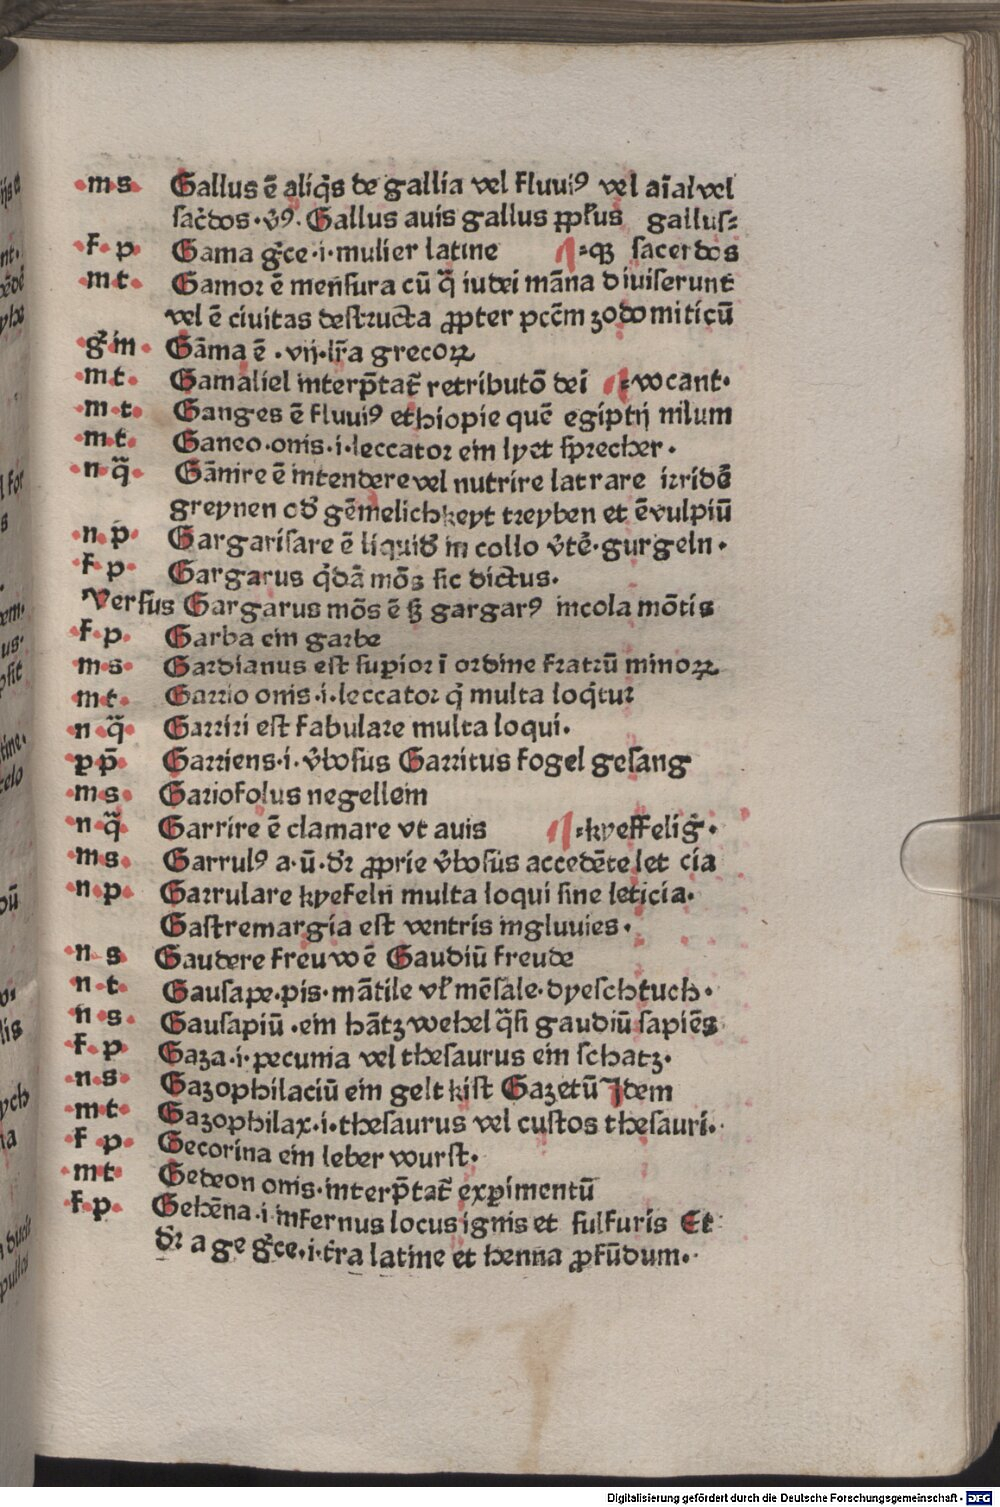 ·m·s· Gallus ē aliq̄s de gallia vel fluuiꝰ vel aīal vel
sac̄dos·v̄ꝰ· Gallus auis gallus ꝓpr̄us gallus⸗
·f·p· Gama gr̄ce·i·mulier latine ¶⸗qꝫ sacerdos
·m·t· Gamor ē mensura cū q̄ iudei māna diuiserunt
vel ē ciuitas destructa ꝓpter pcc̄m zodomiticū
·g̊·in· Gāma ē ·vij·lr̄a grecoꝝ
·m·t· Gamaliel interp̄tat̄ retributō dei ¶⸗vocant·
·m·t· Ganges ē fluuiꝰ ethiopie quē egiptij nilum
·m·t· Ganeo·onis·i·leccator ein lyet sprecher·
·n·q̄· Gānire ē intendere vel nutrire latrare irridē
greynen od̄ gēmelichkeyt treyben et ē vulpiū
·n·p· Gargarisare ē liquid̄ in collo v̄tē·gurgeln·
·f·p· Gargarus q̄dā mōs sic dictus·
Versus Gargarus mōs ē sꝫ gargarꝰ incola mōtis
·f·p· Garba ein garbe
·m·s· Gardianus est supior ī ordine fratrū minoꝝ
·m·t· Garrio onis·i·leccator q̄ multa loq̄tur
·n·q̄· Garriri est fabulare multa loqui·
·p·p̄· Garriens·i·v̄bosus Garritus fogel gesang
·m·s· Gariofolus negellein
·n·q̄· Garrire ē clamare vt auis ¶⸗kyeffeliḡ·
·m·s· Garrulꝰ a·ū·dr̄ ꝓprie v̄bosus accedēte let cia
·n·p· Garrulare kyefeln multa loqui sine leticia·
Gastremargia est ventris ingluuies·
·n·s Gaudere freuwē Gaudiū freude
·n·t· Gausape·pis·mātile vl̄ mēsale·dyeschtuch·
·n·s· Gausapiū ·ein hātzwehel q̄si gaudiū sapiēs
·f·p Gaza·i·pecunia vel thesaurus ein schatz·
·n·s· Gazophilaciū ein gelt kist Gazetū Jdem
·m·t· Gazophilax·i·thesaurus vel custos thesauri·
·f·p· Gecorina ein leber wurst·
·m·t· Gedeon onis·interp̄tat̄ expimentū
·f·p· Gehēna·i·infernus locus ignis et sulfuris Et
dr̄ a ge gr̄ce·i·tr̄a latine et henna ꝓfūdum·
Digitalisierung gefördert durch die Deutsche Forschungsgemeinschaft · DFG